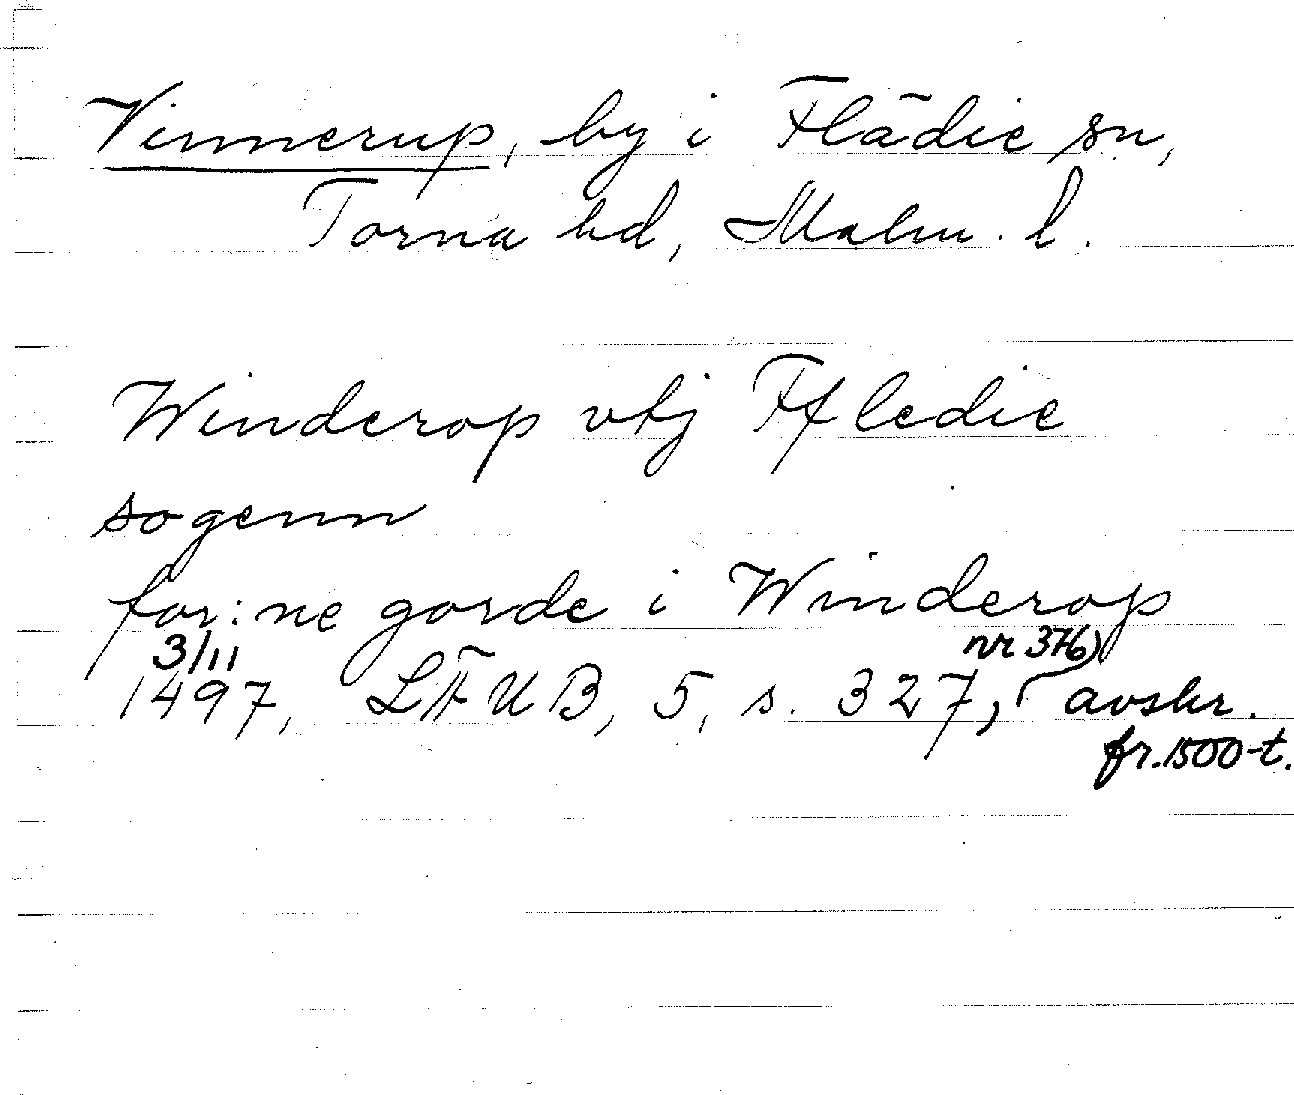 Vinnerup, by i Flädie sn,
Torna hd, Malm. l.
Winderop vtj Ffledie
sogenn
for:ne gorde i Winderop
3/11 nr 376)
1497, LÄUB, 5, s. 327, avskr.
fr. 1500-t.